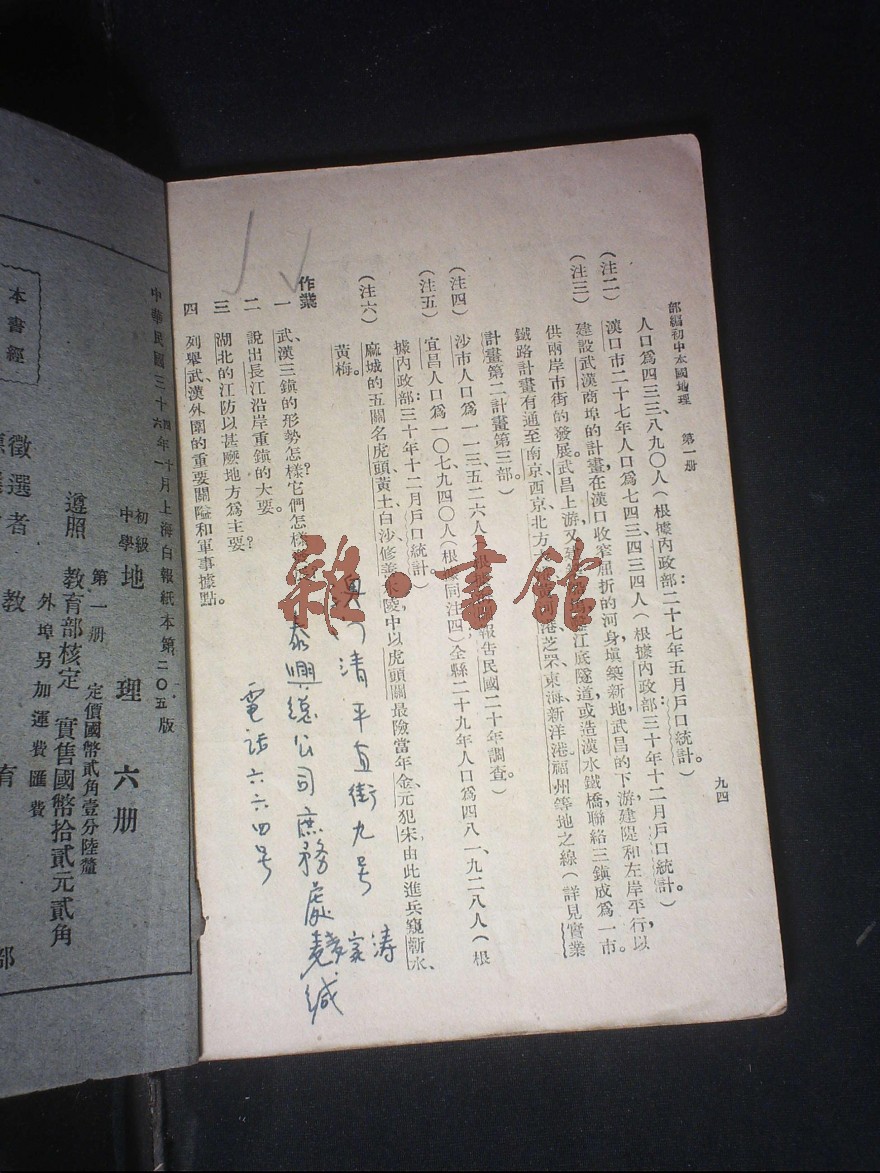 部編初中本國地理　第一册
九四
人口爲四三三八九〇人(根據內政部:二十七年五月戶口統計。)
(注二)漢口市二十七年人口爲七四三四三四人(根據內政部:三十年十二月戶口統計。)
(注三)建設武漢商埠的計畫,在漢口收窄屈折的河身塡築新地,武昌的下游,建隄和左岸平行,以
供兩岸市街的發展。武昌上游,又
江底隧道,或造漢水鐵橋,聯絡三鎭成爲一市。
鐵路計畫有通至南京、西京、北方大
港、芝罘、東海、新洋港、福州等地之線(詳見實業
計畫第二計畫第三部。)
(注四)沙市人口爲一一三五二六人
報告民國二十年調查。)
(注五)宜昌人口爲一〇七九四〇人(根據同注四)全縣二十九年人口爲四八一、九二八人(根
據內政部:三十年十二月戶口統計。)
(注六)麻城的五關名虎頭、黃土、白沙、修善、
陵,中以虎頭關最險,當年金、元犯宋,由此進兵窺蘄水、
黃梅。
作業
一　武、漢三鎭的形勢怎樣?它們怎樣
二　說出長江沿岸重鎭的大要。
三　湖北的江防以甚麽地方爲主要?
四　列舉武、漢外圍的重要關隘和軍事據點。
清平直街九号
泰興總公司庶務處
緘
電話六六四号
雜·書館
中華民國三十
年
月上海白報紙本第二〇五版
初級中學　地理　六册
第一册　定價國幣貳角壹分陸釐
外埠另加運費匯費
遵照　教育部核定　實售國幣拾貳元貳角
本書經
徵選者　教
育
部